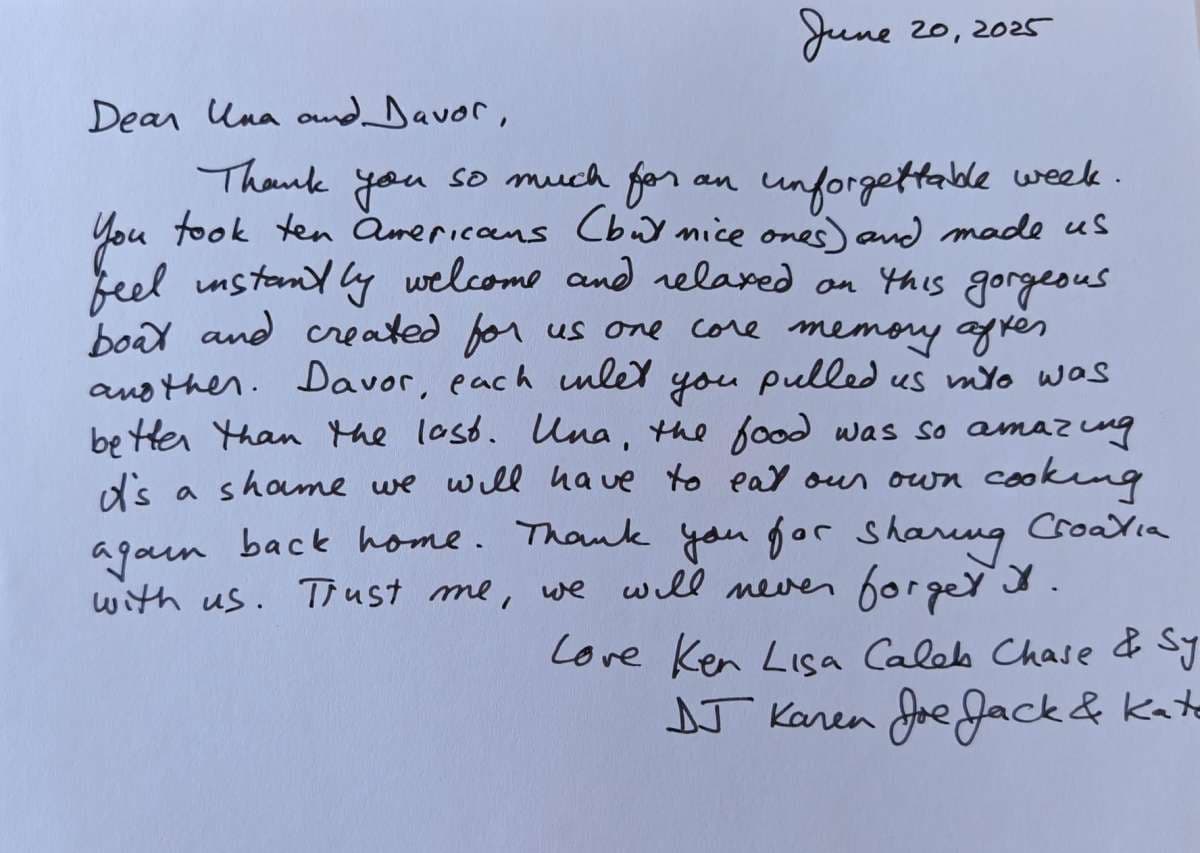 June 20, 2025
Dear Una and Davor,
Thank you so much for an unforgettable week.
You took ten Americans (but nice ones) and made us
feel instantly welcome and relaxed on this gorgeous
boat and created for us one core memory after
another. Davor, each inlet you pulled us into was
better than the last. Una, the food was so amazing
it's a shame we will have to eat our own cooking
again back home. Thank you for sharing Croatia
with us. Trust me, we will never forget it.
Love Ken Lisa Caleb Chase & Sy
DJ Karen Joe Jack & Kate